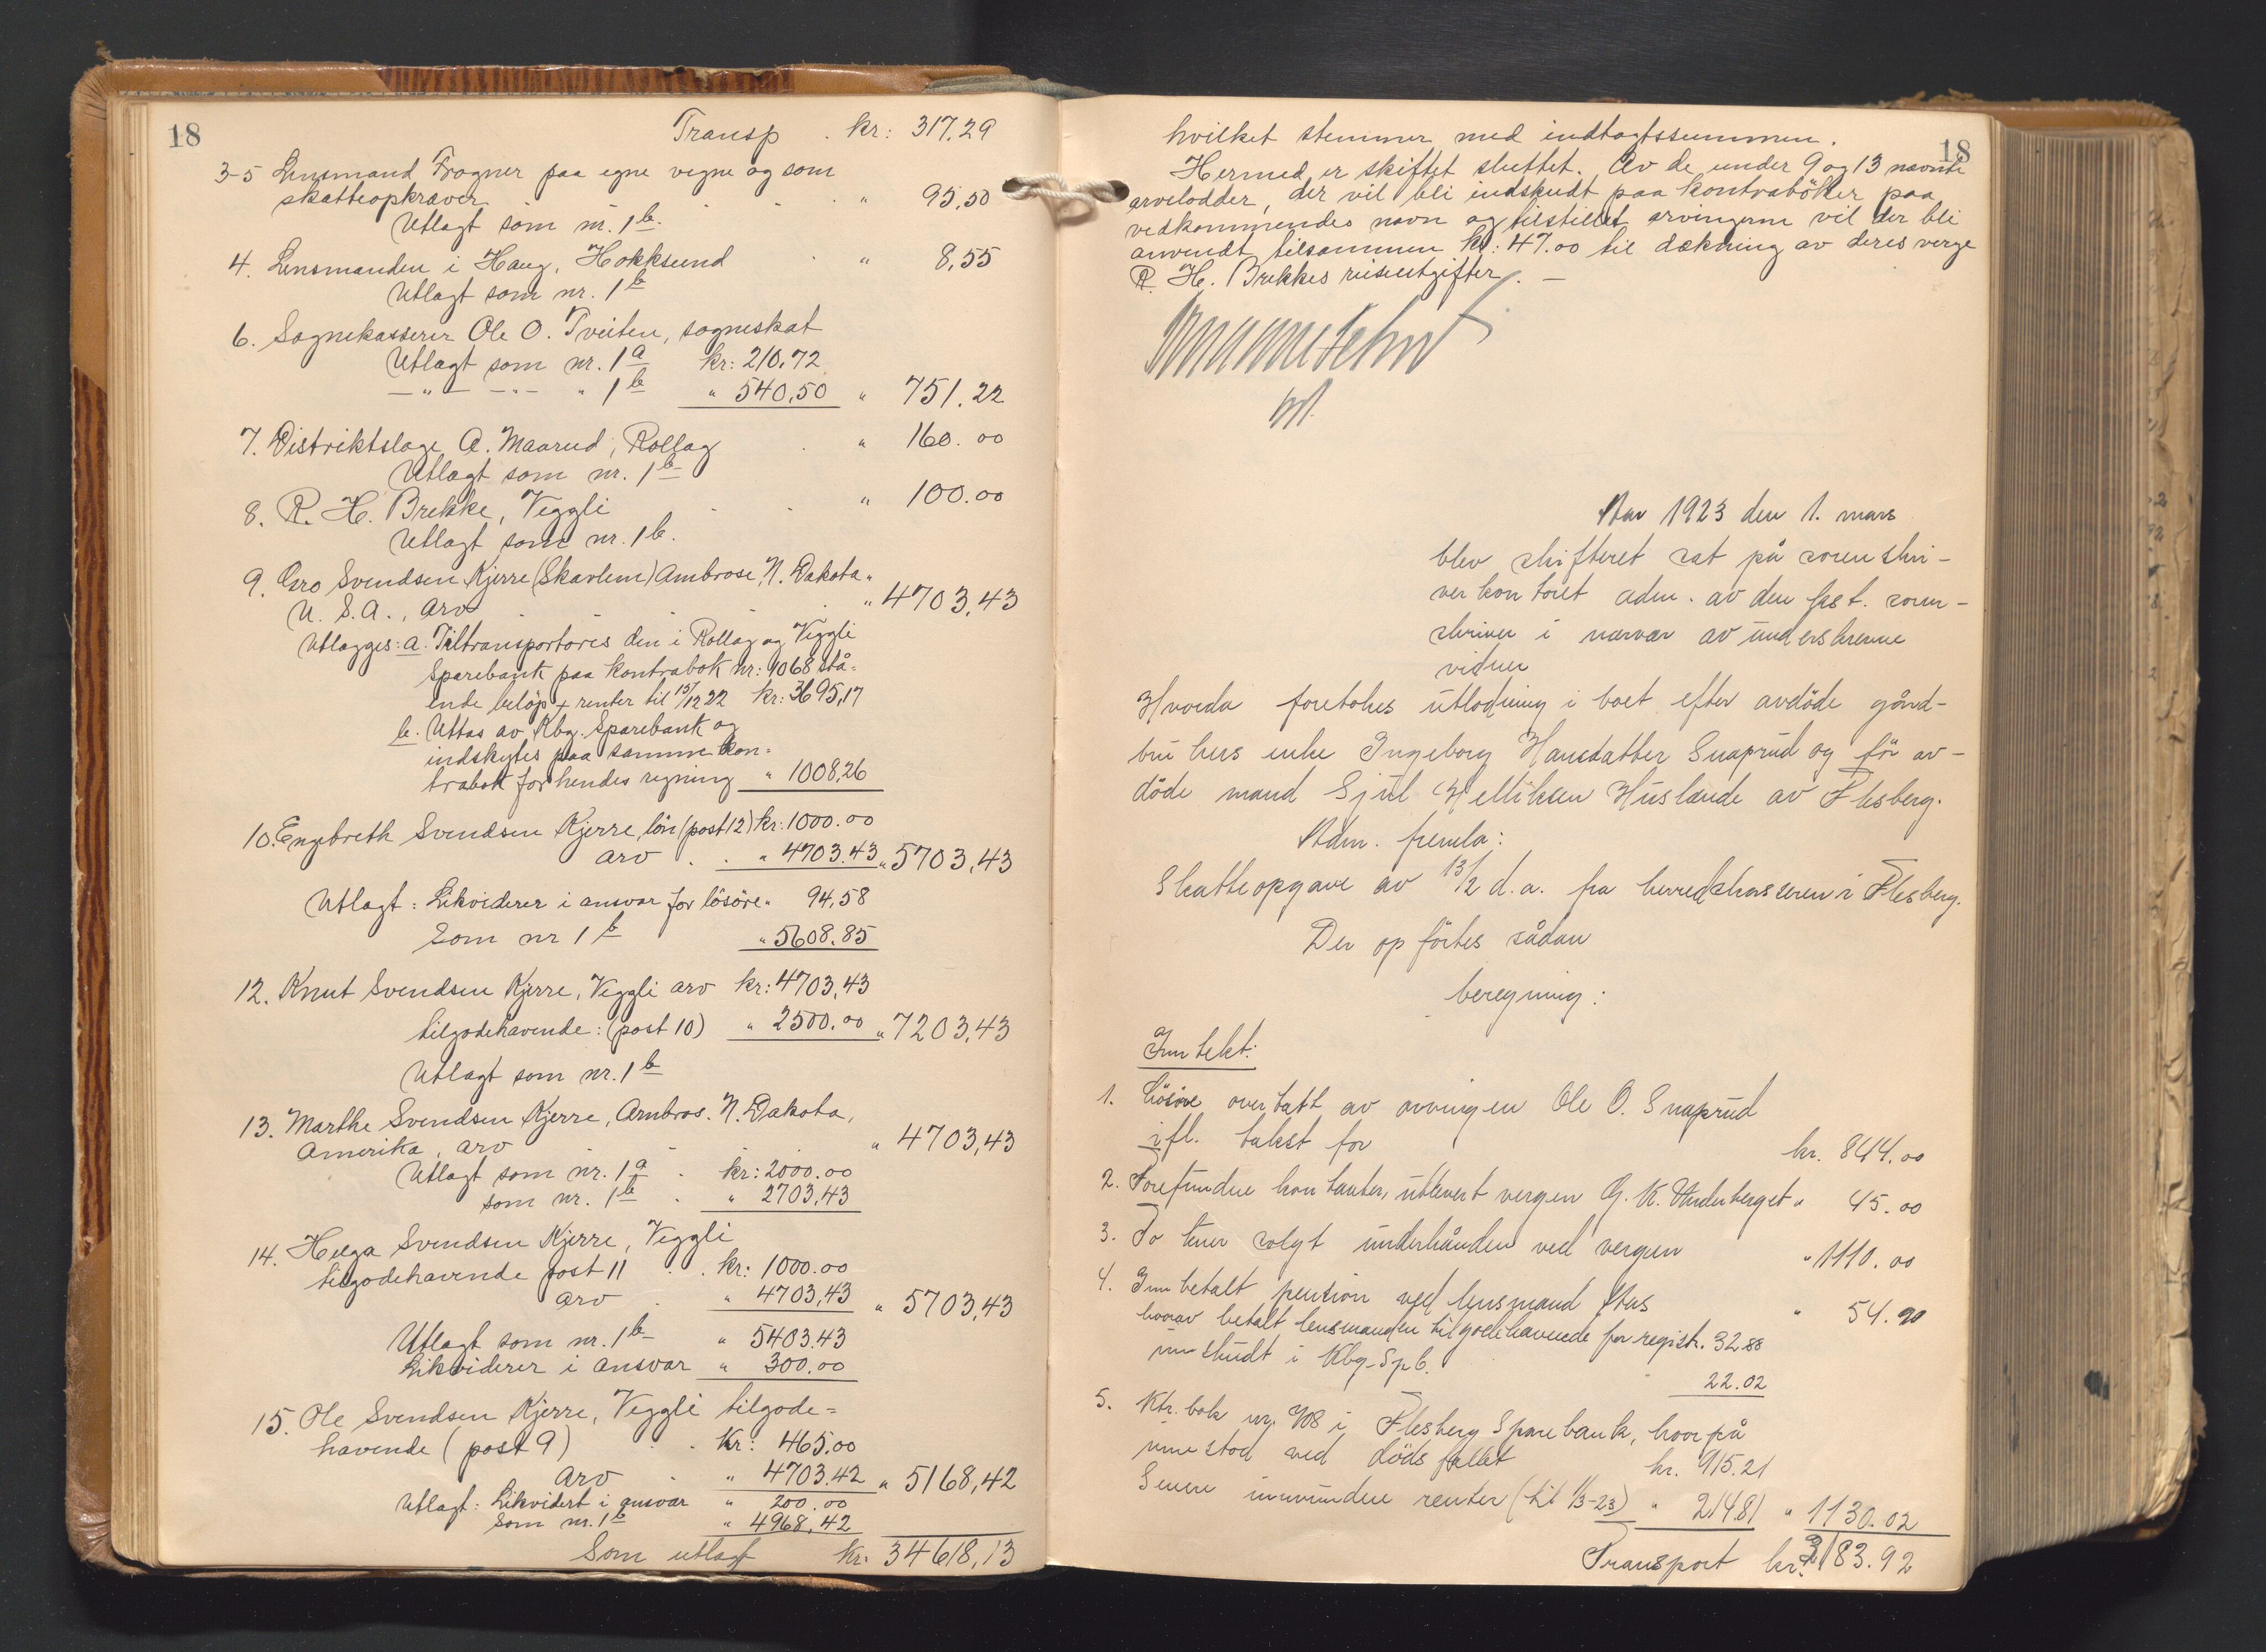 18
Transp . kr: 317.29
3-5 Lensmand Frogner paa egne vegne og som
skatteopkræver . . . " 95,50
Utlagt som nr. 1b.
4. Lensmanden i Haug, Hokksund . " 8,55
Utlagt som nr. 1b
6. Sognekasserer Ole O. Tveiten, sogneskat
Utlagt som nr. 1a kr: 210.72
— " — — " — " 1b " 540,50 " 751.22
7. Distriktslæge A. Maarud, Rollag . " 160.00
Utlagt som nr. 1b
8. R. H. Brekke, Veggli . . " 100.00
Utlagt som nr. 1b.
9. Gro Svendsen Kjerre (Skavlem) Ambrose, N. Dakota
U. S. A., arv . . . " 4703,43
Utlægges: a. Tiltransporteres den i Rollag og Veggli
Sparebank paa kontrabok nr: 1068 stå=
ende beløp + renter til 15/12 22 kr: 3695,17
b. Uttas av Kbg. Sparebank og
indskytes paa samme kon=
trabok for hendes regning " 1008,26
10. Engebreth Svendsen Kjerre, løn (post 12) kr: 1000.00
arv . . " 4703.43 " 5703,43
Utlagt: Likviderer i ansvar for løsøre " 94,58
Som nr 1b " 5608.85
12. Knut Svendsen Kjerre, Veggli arv kr: 4703,43
tilgodehavende: (post 10) " 2500.00 " 7203,43
Utlagt som nr. 1b
13. Marthe Svendsen Kjerre, Ambros. N. Dakota,
Amerika, arv . . . " 4703,43
Utlagt som nr. 1a . kr: 2000.00
som nr. 1b . " 2703,43
14. Helga Svendsen Kjerre, Veggli
tilgodehavende post 11 . . kr: 1000.00
arv . " 4703,43 " 5703,43
Utlagt som nr. 1b " 5403.43
Likviderer i ansvar " 300.00
15. Ole Svendsen Kjerre, Veggli tilgode=
havende (post 9) . . Kr: 465.00
arv . " 4703.42 " 5168,42
Utlagt: Likvidert i ansvar " 200.00
som nr. 1b " 4968,42
Som utlagt kr: 34618,13
18
hvilket stemmer med indtægtssummen.
Hermed er skiftet sluttet. Av de under 9 og 13 nævnte
arvelodder, der vil bli indskudt paa kontrabøker paa
vedkommendes navn og tilstillet arvingerne vil der bli
anvendt tilsammen kr: 47.00 til dækning av deres verge
R. H. Brekkes reiseutgifter. —
Aar 1923 den 1. mars
blev skifteret sat på sorenskri-
verkontoret adm. av den fast. soren-
skriver i nærvær av underskrevne
vidner
Hvorda foretokes utlodning i boet efter avdøde gård-
brukers enke Ingeborg Hansdatter Snaprud og før av-
døde mand Sjul Helliksen Huslænde av Flesberg.
Adm. fremla:
Skatteopgave av 13/2 d. a. fra herredskasseren i Flesberg.
Der opførtes sådan
beregning:
Inntekt:
1. Løsøre overtatt av arvingen Ole O. Snaprud
ifl. takst for kr. 844.00
2. Forefundne kontanter, utlevert vergen G. K. Underberget " 45.00
3. To kuer solgt underhånden ved vergen " 1110.00
4. Innbetalt pension ved lensmand " 54.90
hvorav betalt lensmanden tilgodehavende for registr. 32.88
innskudt i Kbg. Spb. 22.02
5. Ktr. bok nr. 708 i Flesberg Sparebank, hvorpå
innestod ved dødsfallet kr. 915.21
Senere innvundne renter (til 1/3-23) " 214.81 " 1130.02
Transport kr. 3183.92